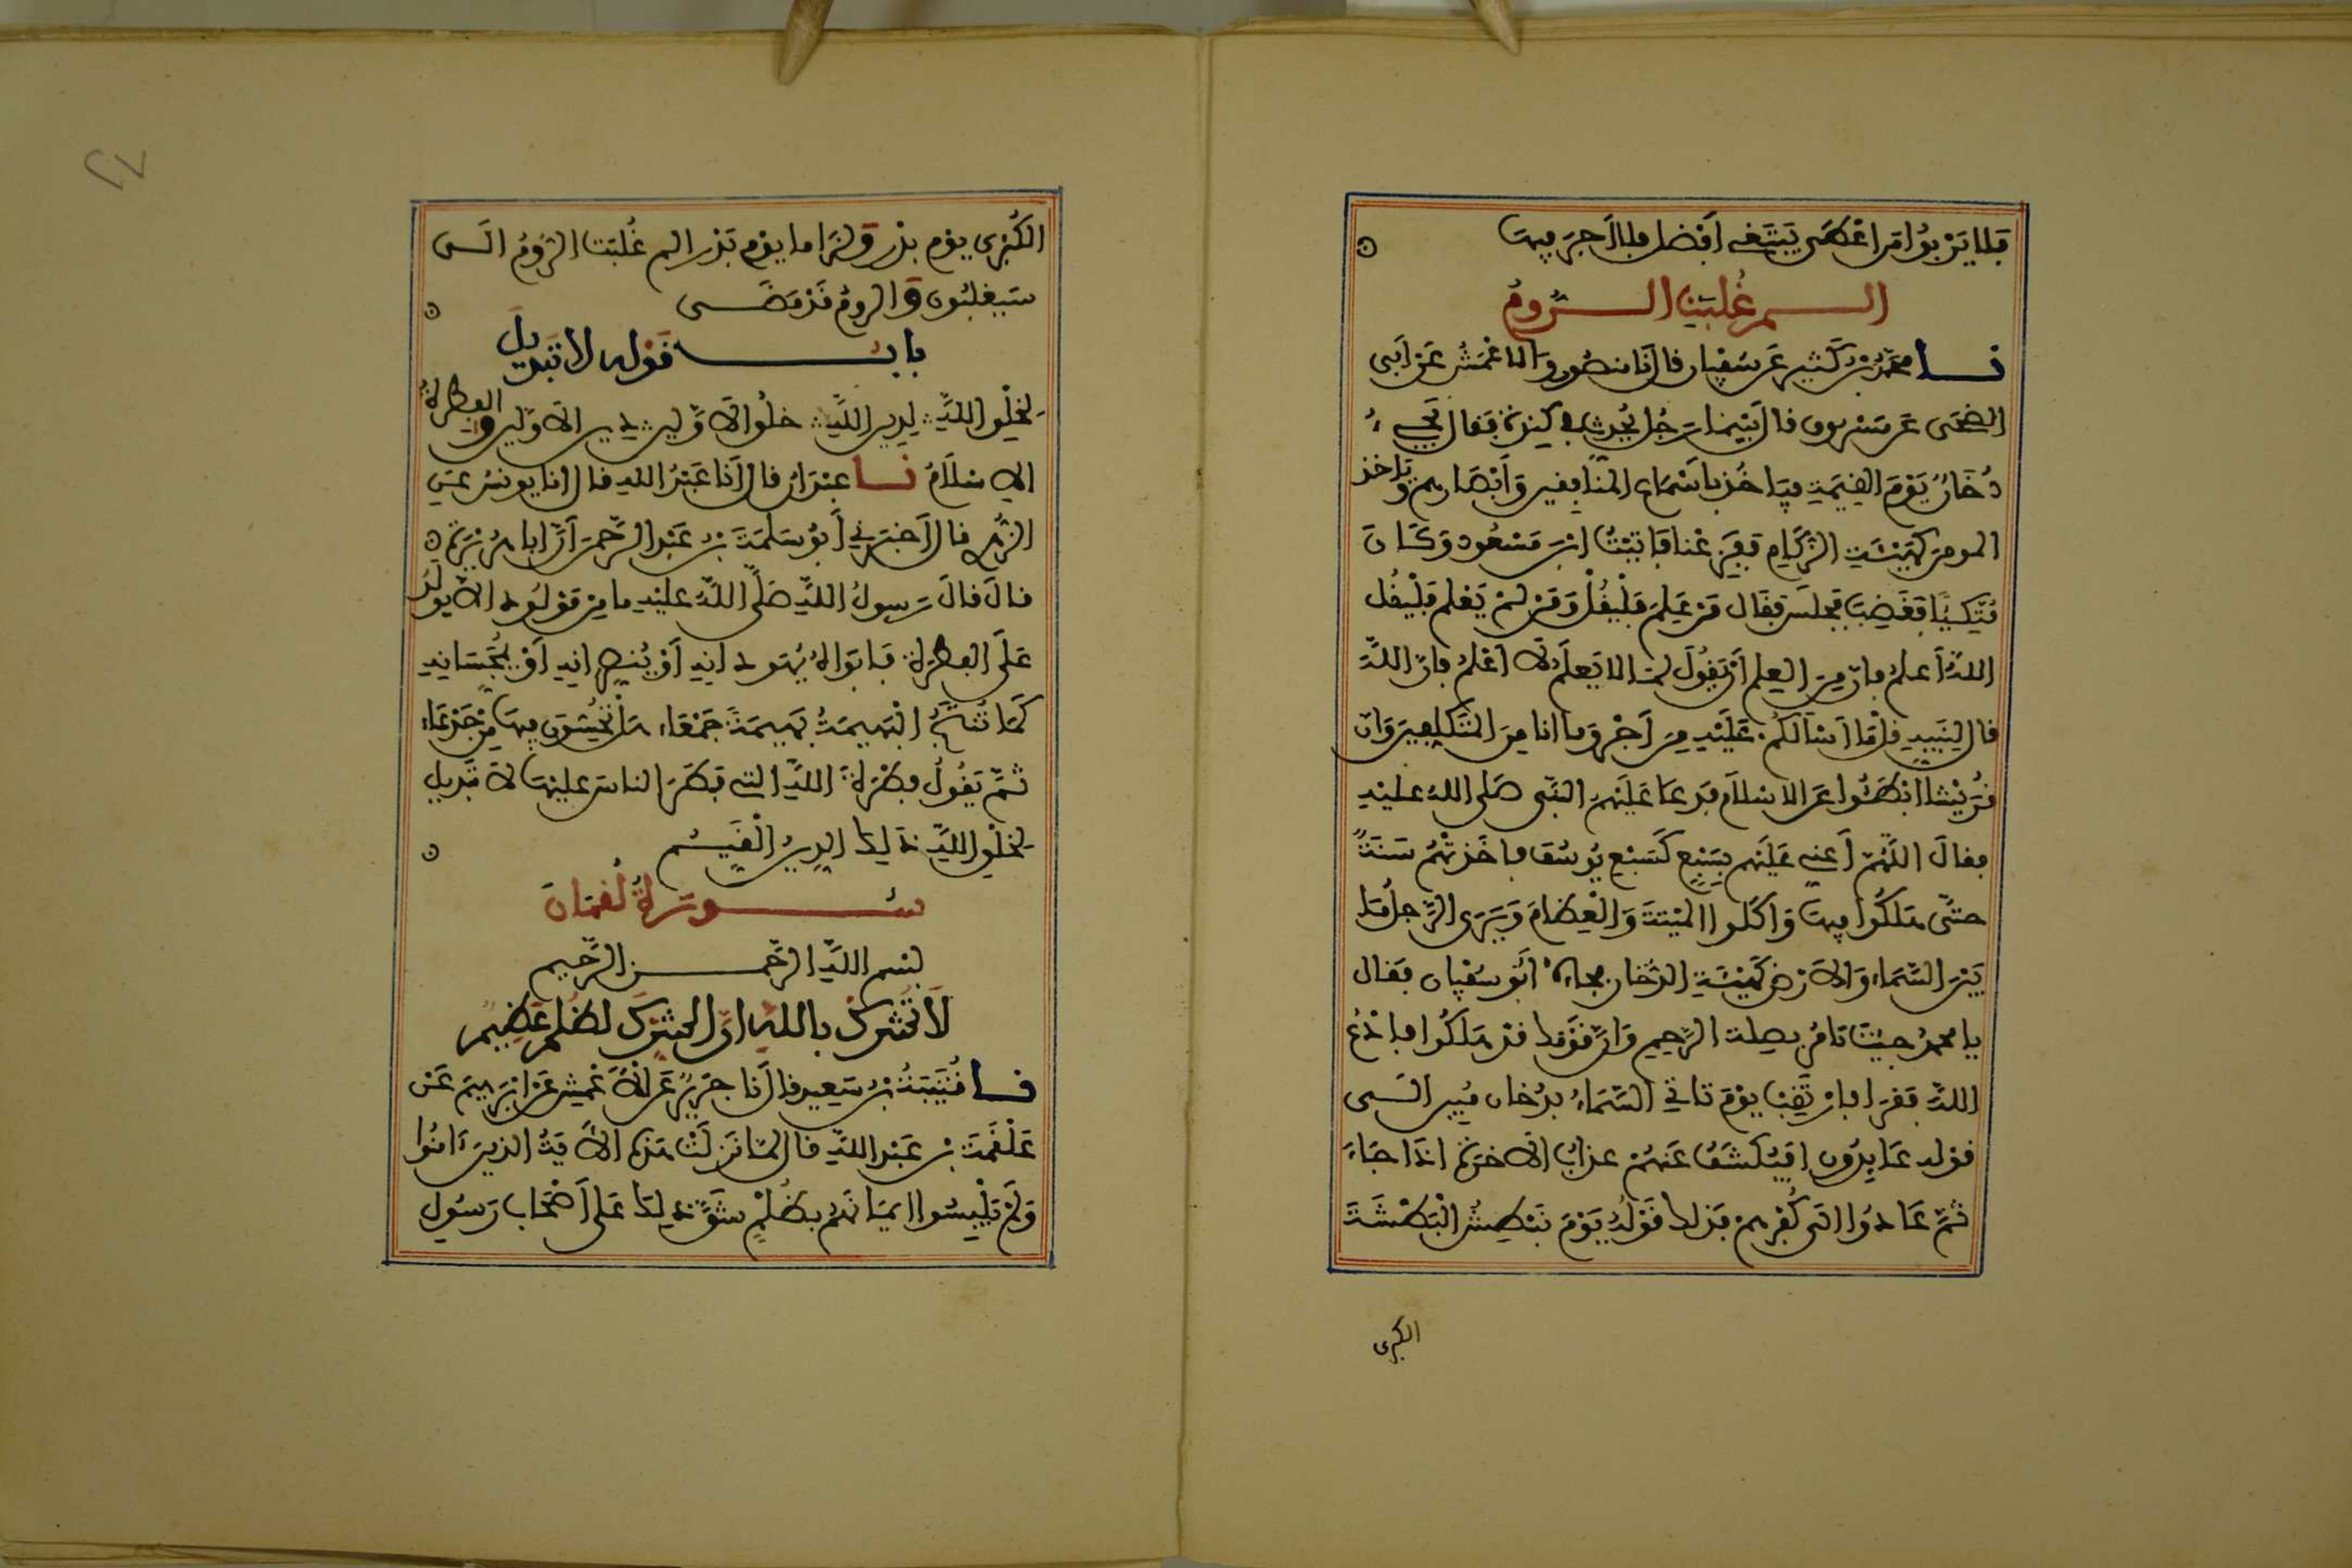 فلا يربوا من اعطى يبتغي افضل فلا اجر فيها
الــــم غُلِبَتِ الـــرُّومُ
نــا محمد بن كثير عن سفيان قال نا منصور والاعمش عن ابي
الضحى عن مسروق قال بينما رجل يحدث في كندة فقال يجيء
دخان يوم القيمة فياخذ باسماع المنافقين وابصارهم وياخذ
المومن كهيئة الزكام ففزعنا فاتيت ابن مسعود وكان
متكيا فغضب فجلس فقال من علم فليقل ومن لم يعلم فليقل
الله اعلم فان من العلم ان يقول لما لا يعلم لا اعلم فان الله
قال لنبيه قل ما اسالكم عليه من اجر وما انا من المتكلفين وان
قريشا ابطئوا عن الاسلام فدعا عليهم النبي صلى الله عليه
فقال اللهم اعني عليهم بسبع كسبع يوسف فاخذتهم سنة
حتى هلكوا فيها واكلوا الميتة والعظام ويرى الرجل ما
بين السماء والارض كهيئة الدخان فجاءه ابو سفيان فقال
يا محمد جيت تامر بصلة الرحم وان قومك قد هلكوا فادع
الله فقرا فارتقب يوم تاتي السماء بدخان مبين الى
قوله عايدون افيكشف عنهم عذاب الاخرة اذا جاء
ثم عادوا الى كفرهم فذلك قوله يوم نبطش البطشة
الكبرى
الكبرى يوم بدر ولزاما يوم بدر الم غلبت الروم الى
سيغلبون والروم قد مضى
بابــــ قوله لا تبديل
لخلق الله لدين الله خلق الاولين دين الاولين والفطرة
الاسلام نــا عبدان قال انا عبد الله قال انا يونس عن
الزهري قال اخبرني ابو سلمة بن عبد الرحمن ان ابا هريرة
قال قال رسول الله صلى الله عليه ما من مولود الا يولد
على الفطرة فابواه يهودانه او ينصرانه او يمجسانه
كما تنتج البهيمة بهيمة جمعاء هل تحسون فيها من جدعاء
ثم يقول فطرة الله التي فطر الناس عليها لا تبديل
لخلق الله ذلك الدين القيم
ســــورة لقمان
بسم الله الرحمــــن الرحيم
لا تشرك بالله ان الشرك لظلم عظيم
نــا قتيبة بن سعيد قال نا جرير عن الاعمش عن ابرهيم عن
علقمة بن عبد الله قال لما نزلت هذه الاية الذين ءامنوا
ولم يلبسوا ايمانهم بظلم شق ذلك على اصحاب رسول